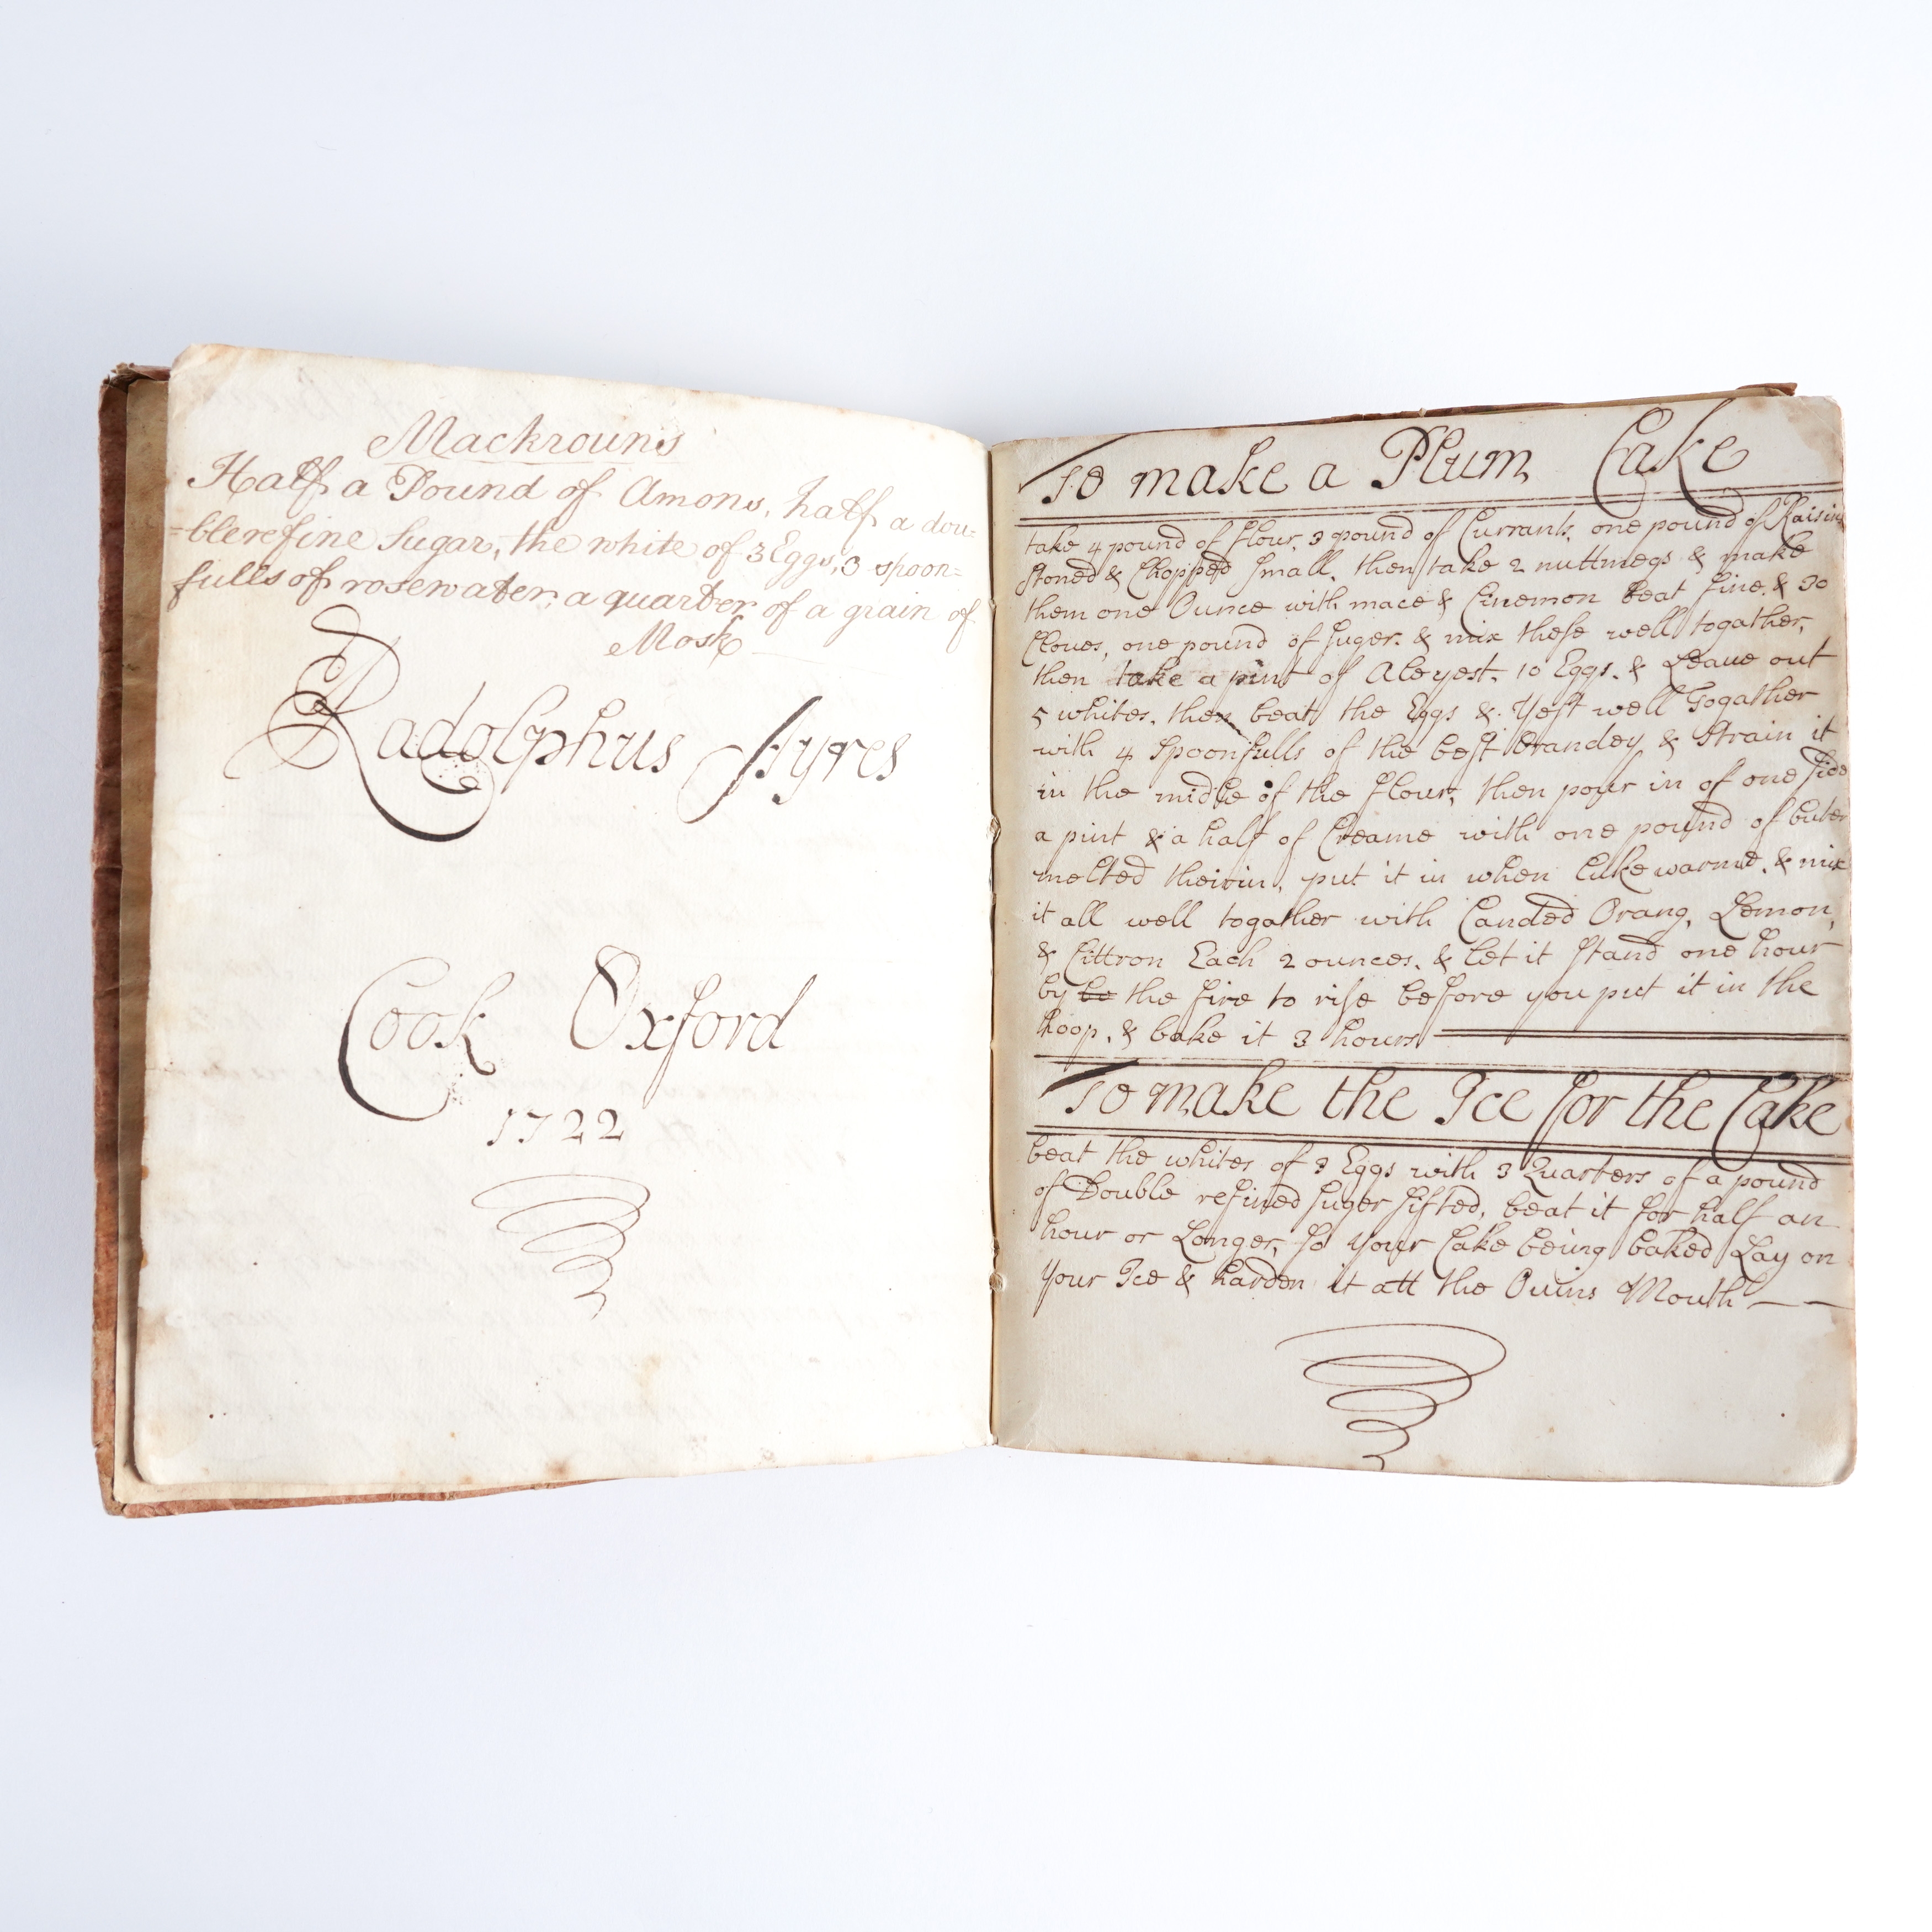 Mackrouns
Half a Pound of Amons, half a dou-
=blerefine Sugar, the white of 3 Eggs, 3 spoon=
fulls of rosewater, a quarter of a grain of
Mosk
Radolphus Ayres
Cook Oxford
1722
To make a Plum Cake
take 4 pound of flour, 3 pound of Currants, one pound of Raisins
Stoned & Chopped Small, then take 2 nuttmegs & make
them one Ounce with mace & Cinemon beat fine, & 30
Cloues, one pound of Suger. & mix these well togather,
then take a pint of Aleyest, 10 Eggs, & Leaue out
5 whites, then beat the Eggs & Yest well Togather
with 4 Spoonfulls of the best brandey & Strain it
in the midle of the flour, then pour in of one side
a pint & a half of Creame with one pound of buter
melted theirin, put it in when luke warme, & mix
it all well togather with Canded Orang, Lemon,
& Cittron Each 2 ounces, & let it Stand one hour
by be the fire to rise before you put it in the
hoop, & bake it 3 hours
To make the Ice for the Cake
beat the whites of 3 Eggs with 3 Quarters of a pound
of Double refined Suger Sifted, beat it for half an
hour or Longer, So your Cake being baked Lay on
your Ice & harden it att the Ouins Mouth